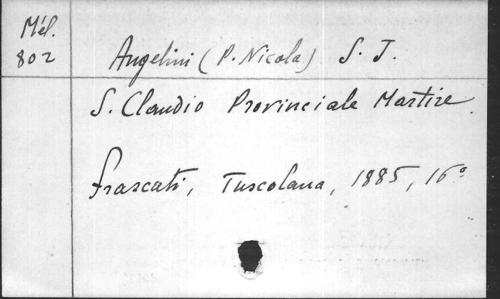 Mél.
802
Angelini (P. Nicola) S. J.
S. Claudio Provinciale Martire
Frascati, Tuscolana, 1885, 16°